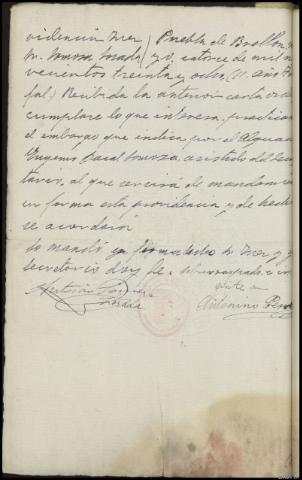 videncia Juez / Puebla de Brollon
Sr. Somoza Losada / y o, catorce de mil n
vecientos treinta y ocho (II. año triun
fal) Recibida la anterior carta orden
cumplase lo que interesa, practican
el embargo que indica, por el Alguacil
Eugenio Casal Somoza, asistido del Secre
tario, al que servirá de mandamien
en forma esta providencia, y de hecho
se acordará
Lo mandó y firma dicho Sr. Juez, y yo
secretario doy fe.
Losada
Antonino Pérez